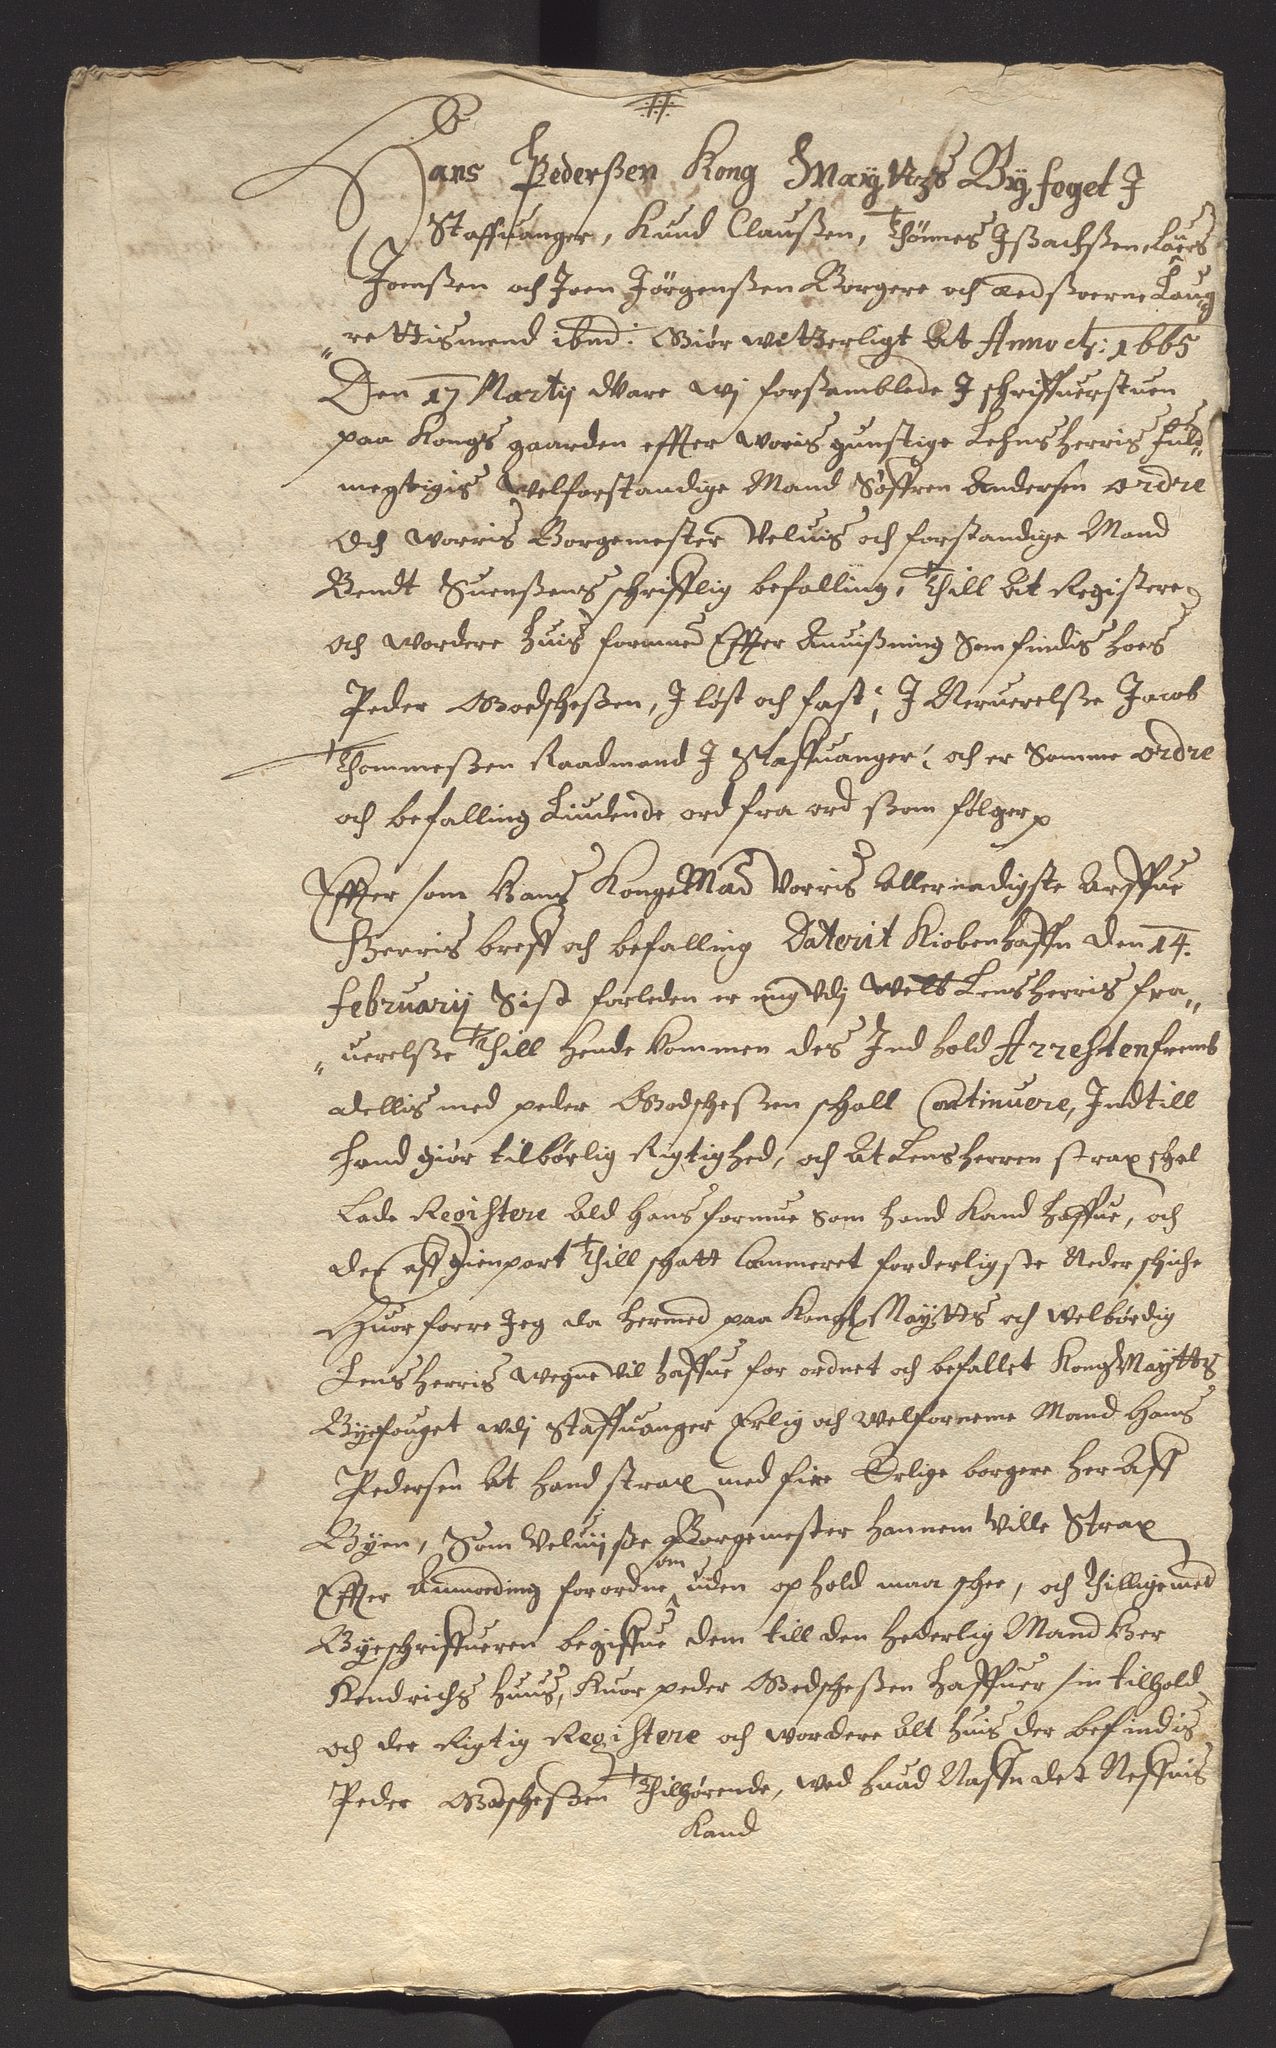 Hans Pederßen Kong Maÿtt{ts} Byfoget I
Staffuanger, Knud Claußen, Thönnes Ißachßen Laurs
Joenßen och Joen Jörgenßen Borgere och aedßoerne Laug
rettismend ibmd: Giör witterligt At Anno etc: 1665
Den 17 Martij Ware wj forßamblede I schriffuerstuen
paa Kongs gaarden effter woris gunstige Lehns herris fuld
megtigis Welforstandige Mand Söffren Andersen ordre
Och worris Borgemester Veluis och forstandige Mand
Bendt Suenßens schrifftlig befalling, Thill At Registere
och wordere huis formue Effter Anuißning Som findis hoes
Peder Godscheßen, I löst och fast, I Neruerelße Jacob
Thommeßen Raadmand I Staffuanger, och er Samme ordre
och befalling Liudende ord fra ord ßom fölger
Effter som Hans Konge Ma{tts} Vorris Allernadigste Arffue
Herris breff och befalling Daterit Kiobenhaffn den 14.
Februarij Sist forleden er mig Vdj Welb Lens herris fra
uerelße Thill hende kommen des Ind hold Arresten fremb
dellis med peder Godscheßen schall Continuere, Indtill
hand giör tilbörlig Rigtighed, och At Lens herren strax schal
Lade Registere Ald hans formue som hand kand haffue, och
der aff gienpart Thill schatt Cammeret forderligste Neder schiche
Huor forre Jeg da hermed paa Kongl Maytts och welbördig
Lens herris wegne Vil haffue for ordnet och befallet Kong Maytts
Byefouget wdj Staffuanger Erlig och Welforneme Mand Hans
Pedersen At hand strax med fire Erlige borgere her Aff
Byen, Som Veluijße Borgemester hannem Ville Strax
Effter Anmoeding forordne om uden op hold maa schee, och Thillige med
Byeschriffueren begiffue dem till den hederlig Mand Her
Hendrichs huus, Huor peder Godscheßen haffuer sin tilhold
och der Rigtig Registere och wordere Alt huis der befindis
Peder Godscheßen Thilhörende, wed huad Naffn det Neffnis
Kand